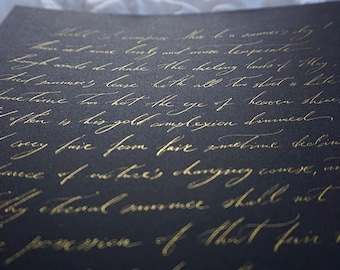 I compare thee to a summer's day?
Thou art more lovely and more temperate:
winds do shake the darling buds of May,
And summer's lease hath all too short a date
time too hot the eye of heaven shines
often is his gold complexion dimmed,
every fair from fair sometime declines
chance or nature's changing course, un
thy eternal summer shall not
possession of that fair